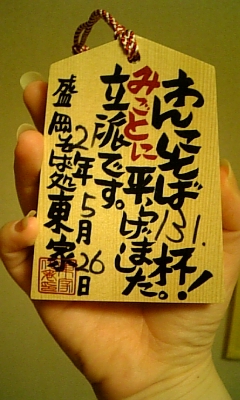 わんこそば131杯!
みごとに平らげました。
立派です。
21年5月26日
盛岡そば処東家